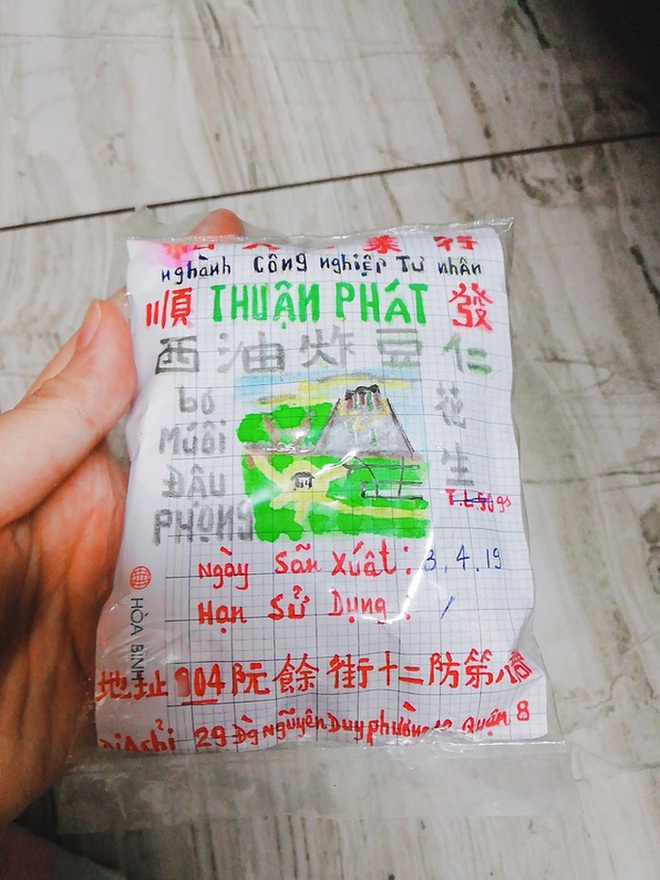 業 行
nghành Công nghiệp Tư nhân
順 THUẬN PHÁT 發
西油炸豆仁
花生
bơ
MUối
ĐẬU
PHỌNG
T.L.50gs
Ngày Sãn xuất : 3.4.19
Hạn Sử Dụng : /
HÒA BÌNH
地址 104 阮餘街十二防第八郡
ĐiAchỉ 29 Đg nguyênDuy phường 12 Quận 8